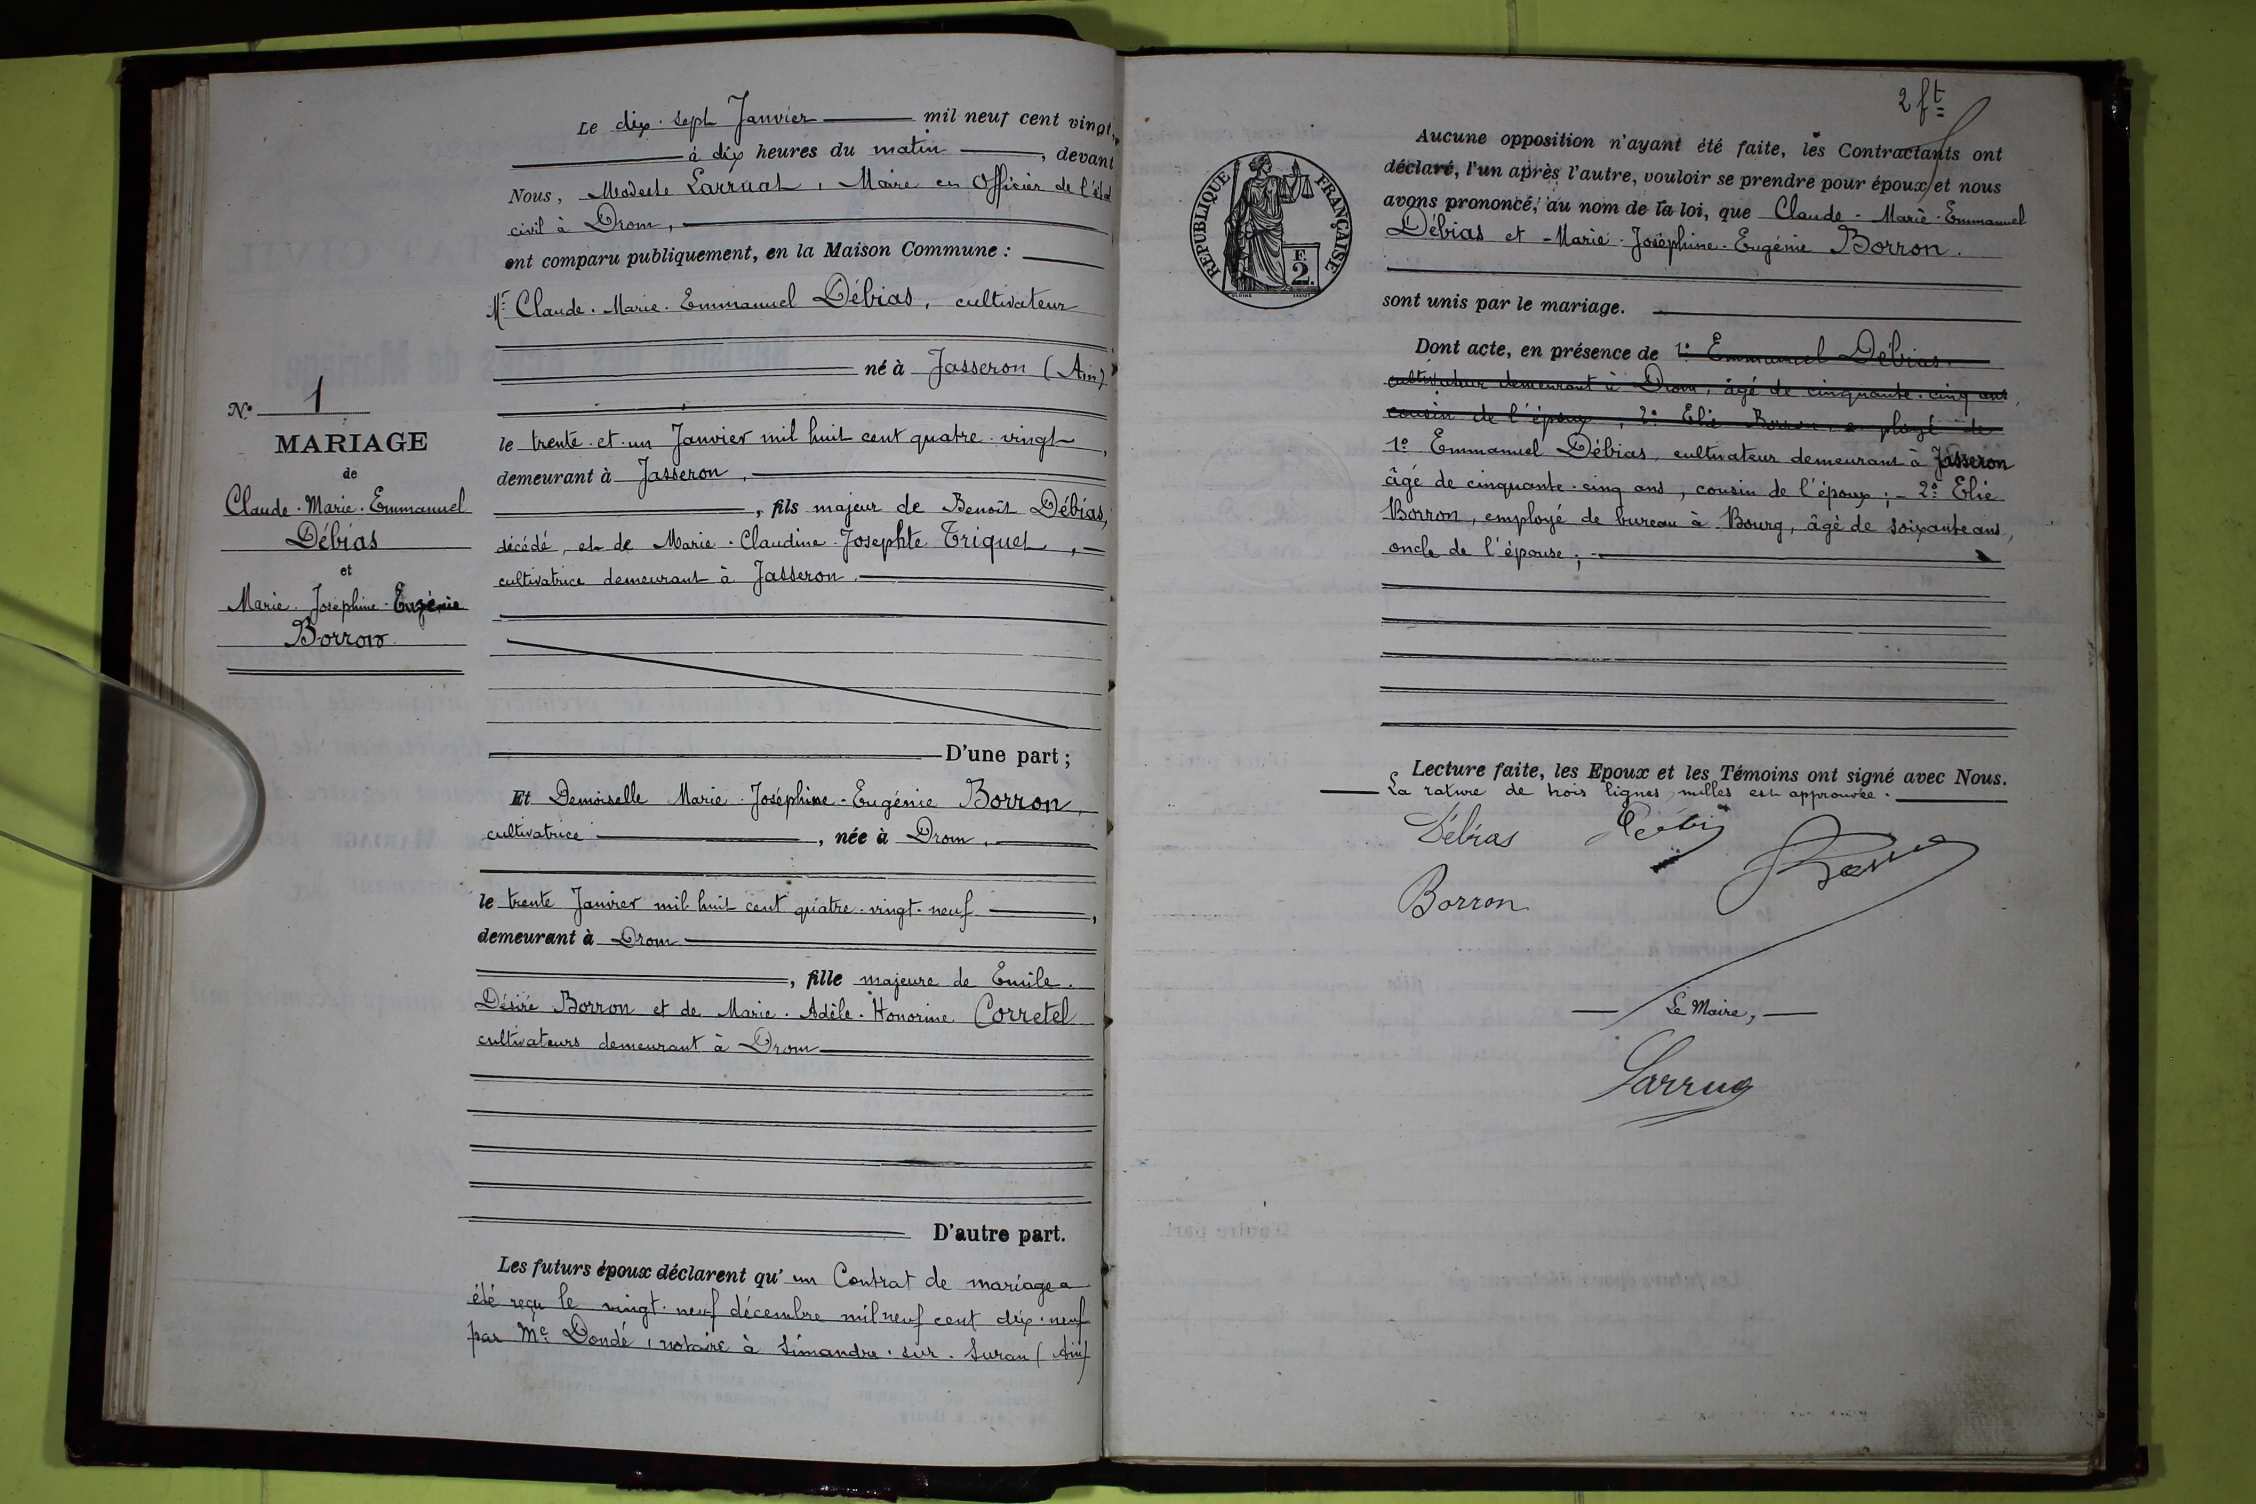 Le dix-sept Janvier mil neuf cent vingt,
à dix heures du matin, devant
Nous, Modeste Larruat, Maire en Officier de l'état
civil à Drom,
ont comparu publiquement, en la Maison Commune :
Mr Claude-Marie-Emmanuel Débias, cultivateur
né à Jasseron (Ain)
le trente-et-un Janvier mil huit cent quatre-vingt,
demeurant à Jasseron,
, fils majeur de Benoît Débias,
décédé, et de Marie-Claudine-Josephte Triquet,
cultivatrice demeurant à Jasseron.
D'une part ;
Et Demoiselle Marie-Joséphine-Eugénie Borron,
cultivatrice, née à Drom,
le trente Janvier mil huit cent quatre-vingt-neuf,
demeurant à Drom
, fille majeure de Emile-
Désiré Borron et de Marie-Adèle-Honorine Corretel
cultivateurs demeurant à Drom
D'autre part.
Les futurs époux déclarent qu'un Contrat de mariage a
été reçu le vingt-neuf décembre mil neuf cent dix-neuf
par Me Dondé, notaire à Simandre-sur-Suran (Ain)
N° 1
MARIAGE
de
Claude-Marie-Emmanuel
Débias
et
Marie-Joséphine-Eugénie
Borron
2 ft
RÉPUBLIQUE FRANÇAISE
F.
2.
Aucune opposition n'ayant été faite, les Contractants ont
déclaré, l'un après l'autre, vouloir se prendre pour époux, et nous
avons prononcé, au nom de la loi, que Claude-Marie-Emmanuel
Débias et Marie-Joséphine-Eugénie Borron.
sont unis par le mariage.
Dont acte, en présence de 1° Emmanuel Débias,
cultivateur demeurant à Drom, âgé de cinquante-cinq ans,
cousin de l'époux, 2° Elie Borron, employé de
1° Emmanuel Débias, cultivateur demeurant à Jasseron
âgé de cinquante-cinq ans, cousin de l'époux ; - 2° Elie
Borron, employé de bureau à Bourg, âgé de soixante ans,
oncle de l'épouse ;
Lecture faite, les Epoux et les Témoins ont signé avec Nous.
La rature de trois lignes nulles est approuvée.
Débias
Borron
Le Maire,
Larrua